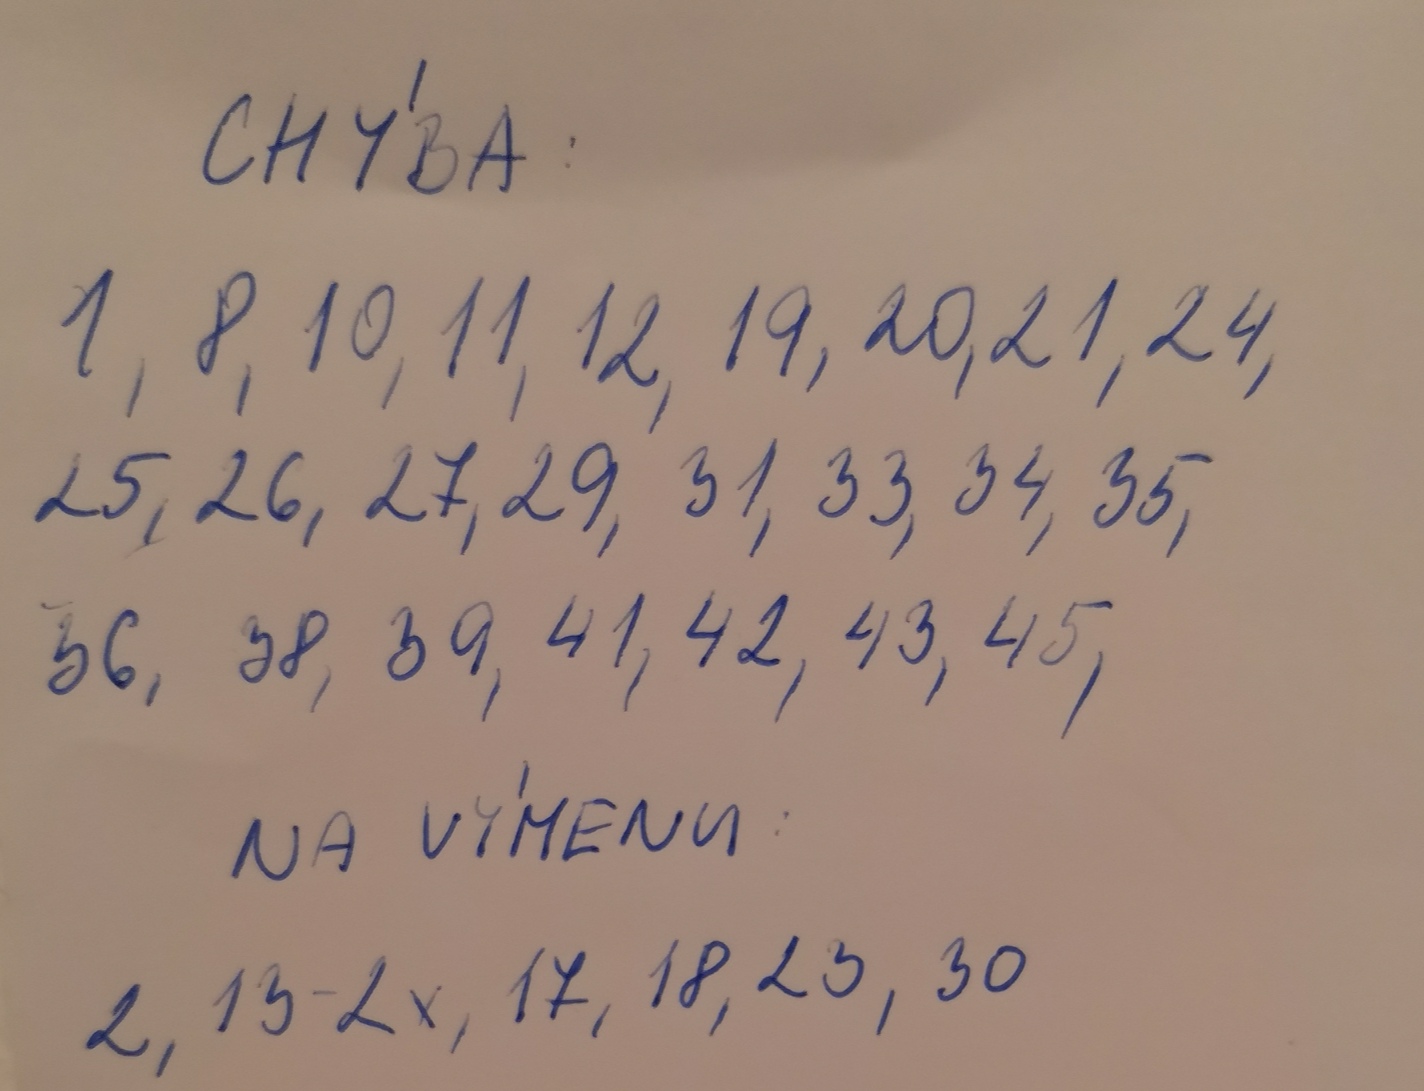 CHÝBA:
1, 8, 10, 11, 12, 19, 20, 21, 24,
25, 26, 27, 29, 31, 33, 34, 35,
36, 38, 39, 41, 42, 43, 45,
NA VÝMENU:
2, 13-2x, 17, 18, 23, 30